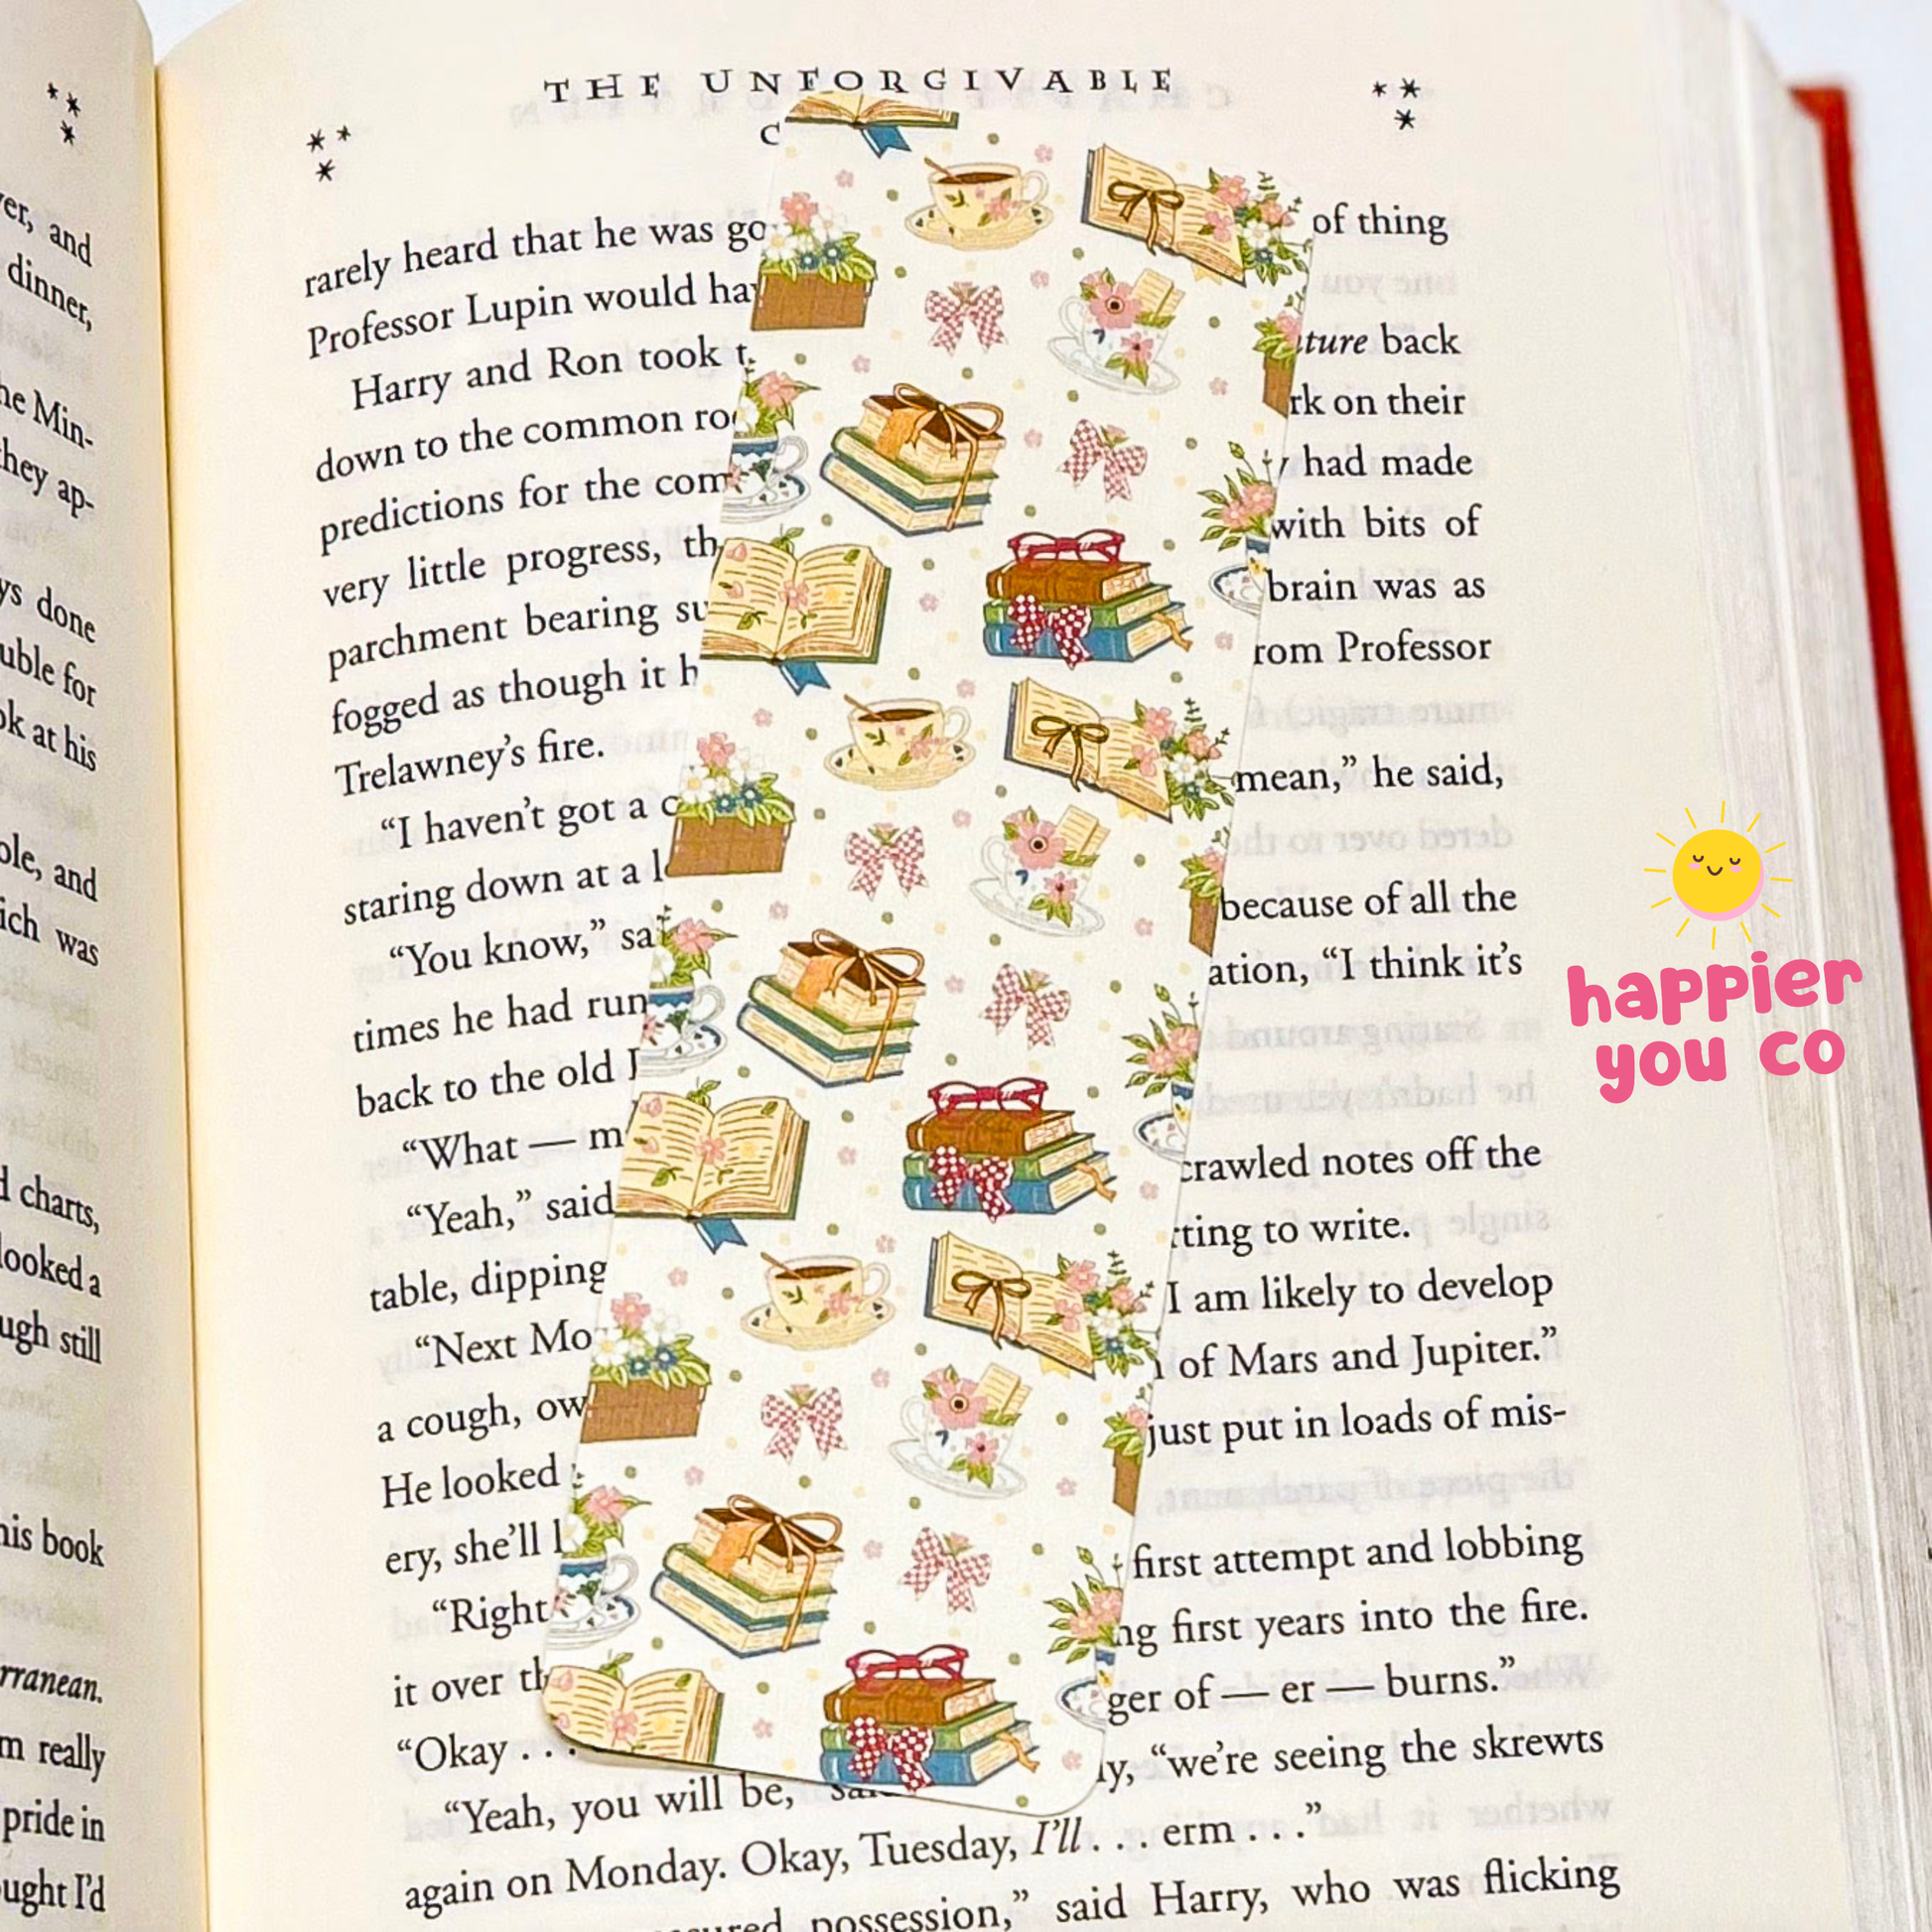 THE UNFORGIVABLE
C
rarely heard that he was go of thing
Professor Lupin would ha
Harry and Ron took t ture back
down to the common ro rk on their
predictions for the com y had made
very little progress, th with bits of
parchment bearing su brain was as
fogged as though it h rom Professor
Trelawney's fire.
"I haven't got a c mean," he said,
staring down at a l
"You know," sa because of all the
times he had run ation, "I think it's
back to the old
"What — m
"Yeah," said crawled notes off the
table, dipping rting to write.
"Next Mo I am likely to develop
a cough, ow of Mars and Jupiter."
He looked just put in loads of mis-
ery, she'll l
"Right first attempt and lobbing
it over th ng first years into the fire.
"Okay . . . ger of — er — burns."
"Yeah, you will be, ly, "we're seeing the skrewts
again on Monday. Okay, Tuesday, I'll . . . erm . . ."
possession," said Harry, who was flicking
er, and
dinner,
he Min-
they ap-
ys done
uble for
ok at his
ole, and
ich was
d charts,
looked a
ugh still
his book
rranean.
m really
pride in
ought I'd
happier
you co